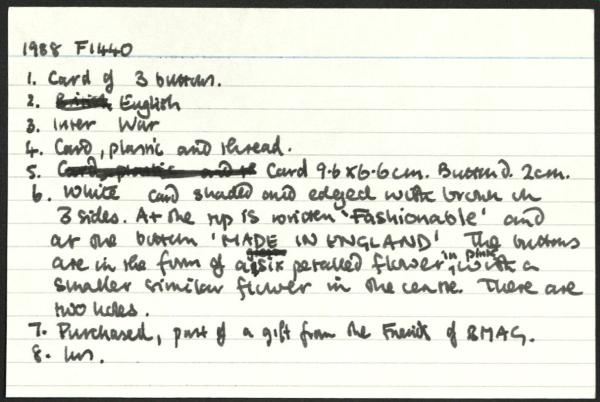 1988 F1440
1. Card of 3 buttons.
2. British English
3. Inter War
4. Card, plastic and thread.
5. Card, plastic and th Card 9.6x6.6cm. Button d. 2cm.
6. White card shaded and edged with brown on
3 sides. At the top is written 'Fashionable' and
at the bottom 'MADE IN ENGLAND' The buttons
are in the form of a six petalled flower in pink, with a
smaller similar flower in the centre. There are
two holes.
7. Purchased, part of a gift from the Friends of BMAG.
8.